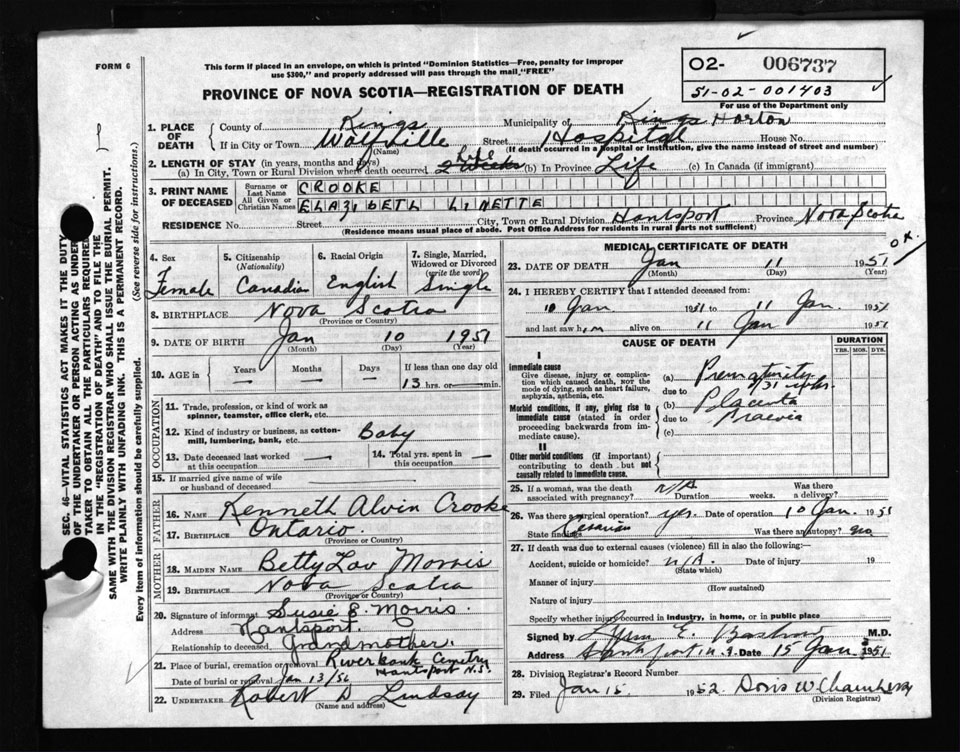 FORM 6
This form if placed in an envelope, on which is printed "Dominion Statistics—Free, penalty for improper
use $300," and properly addressed will pass through the mail "FREE"
PROVINCE OF NOVA SCOTIA—REGISTRATION OF DEATH
O2- 006737
51-02-001403
For use of the Department only
1. PLACE OF DEATH
County of Kings Municipality of Kings Horton
If in City or Town Wolfville Street Hospital House No.
(Name) (If death occurred in a hospital or institution, give the name instead of street and number)
2. LENGTH OF STAY (in years, months and days)
(a) In City, Town or Rural Division where death occurred 2 Weeks Life (b) In Province Life (c) In Canada (if immigrant)
3. PRINT NAME OF DECEASED
Surname or Last Name CROOKE
All Given or Christian Names ELAZIBETL LINETTE
RESIDENCE No. Street City, Town or Rural Division Hantsport Province Nova Scotia
(Residence means usual place of abode. Post Office Address for residents in rural parts not sufficient)
4. Sex Female
5. Citizenship (Nationality) Canadian
6. Racial Origin English
7. Single, Married, Widowed or Divorced (write the word) Single
8. BIRTHPLACE Nova Scotia
(Province or Country)
9. DATE OF BIRTH Jan 10 1951
(Month) (Day) (Year)
10. AGE in Years Months Days If less than one day old
13 hrs. or min.
OCCUPATION
11. Trade, profession, or kind of work as
spinner, teamster, office clerk, etc.
12. Kind of industry or business, as cotton-
mill, lumbering, bank, etc. Baby
13. Date deceased last worked at this occupation —
14. Total yrs. spent in this occupation —
15. If married give name of wife
or husband of deceased
FATHER
16. NAME Kenneth Alvin Crooke
17. BIRTHPLACE Ontario.
(Province or Country)
MOTHER
18. MAIDEN NAME Betty Lou Morris
19. BIRTHPLACE Nova Scotia
(Province or Country)
20. Signature of informant Susie E. Morris.
Address Hantsport.
Relationship to deceased Grandmother.
21. Place of burial, cremation or removal Riverbank Cemetry
Hantsport N.S.
Date of burial or removal Jan 13/56
22. UNDERTAKER Robert D Lindsay
(Name and address)
MEDICAL CERTIFICATE OF DEATH
23. DATE OF DEATH Jan 11 1951 OK.
(Month) (Day) (Year)
24. I HEREBY CERTIFY that I attended deceased from:
10 Jan 1951 to 11 Jan 1951
and last saw him alive on 11 Jan 1951
CAUSE OF DEATH
DURATION
YRS. MOS. DYS.
I
Immediate cause
Give disease, injury or complica-
tion which caused death, NOT the
mode of dying, such as heart failure,
asphyxia, asthenia, etc.
(a) Prematurity
31 wks.
due to
Morbid conditions, if any, giving rise to
immediate cause (stated in order
proceeding backwards from im-
mediate cause).
(b) Placenta
due to Praevia
(c)
II
Other morbid conditions (if important)
contributing to death but not
causally related to immediate cause.
25. If a woman, was the death associated with pregnancy? N/A Duration weeks. Was there a delivery?
26. Was there a surgical operation? yes. Date of operation 10 Jan. 1951
State findings Cesarian Was there autopsy? no
27. If death was due to external causes (violence) fill in also the following:—
Accident, suicide or homicide? N/A. Date of injury 19
(State which)
Manner of injury
(How sustained)
Nature of injury
Specify whether injury occurred in industry, in home, or in public place
Signed by E. M.D.
Address Hantsport N.S. Date 15 Jan 1951
28. Division Registrar's Record Number
29. Filed Jan 15. 1952. Doris W. Chambers
(Division Registrar)
SEC. 46—VITAL STATISTICS ACT MAKES IT THE DUTY
OF THE UNDERTAKER OR PERSON ACTING AS UNDER-
TAKER TO OBTAIN ALL THE PARTICULARS REQUIRED
IN THE "REGISTRATION OF DEATH" AND TO FILE THE
SAME WITH THE DIVISION REGISTRAR WHO SHALL ISSUE THE BURIAL PERMIT.
WRITE PLAINLY WITH UNFADING INK. THIS IS A PERMANENT RECORD.
Every item of information should be carefully supplied. (See reverse side for instructions.)